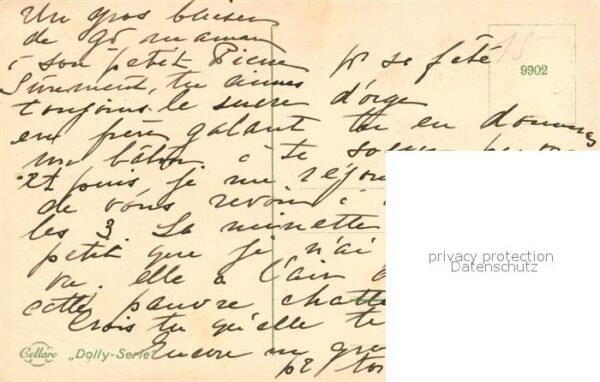 Un gros baiser
de gd maman
à son petit Pierre pr sa fête
Sûrement, tu aimes
toujours le sucre d'orge
en frère galant tu en donneras
un bâton à te
et puis je me réjouis
de vous revoir
les 3. La minette
petit que je n'ai
va. elle a l'air
cette pauvre chatte
Crois tu qu'elle te
Encore un gro
pr to
9902
privacy protection
Datenschutz
Cellaro „Dolly-Serie"